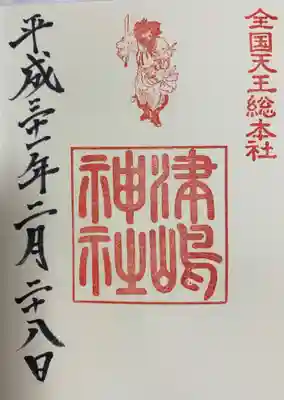 全国天王総本社
津嶋
神社
平成三十一年二月二十八日